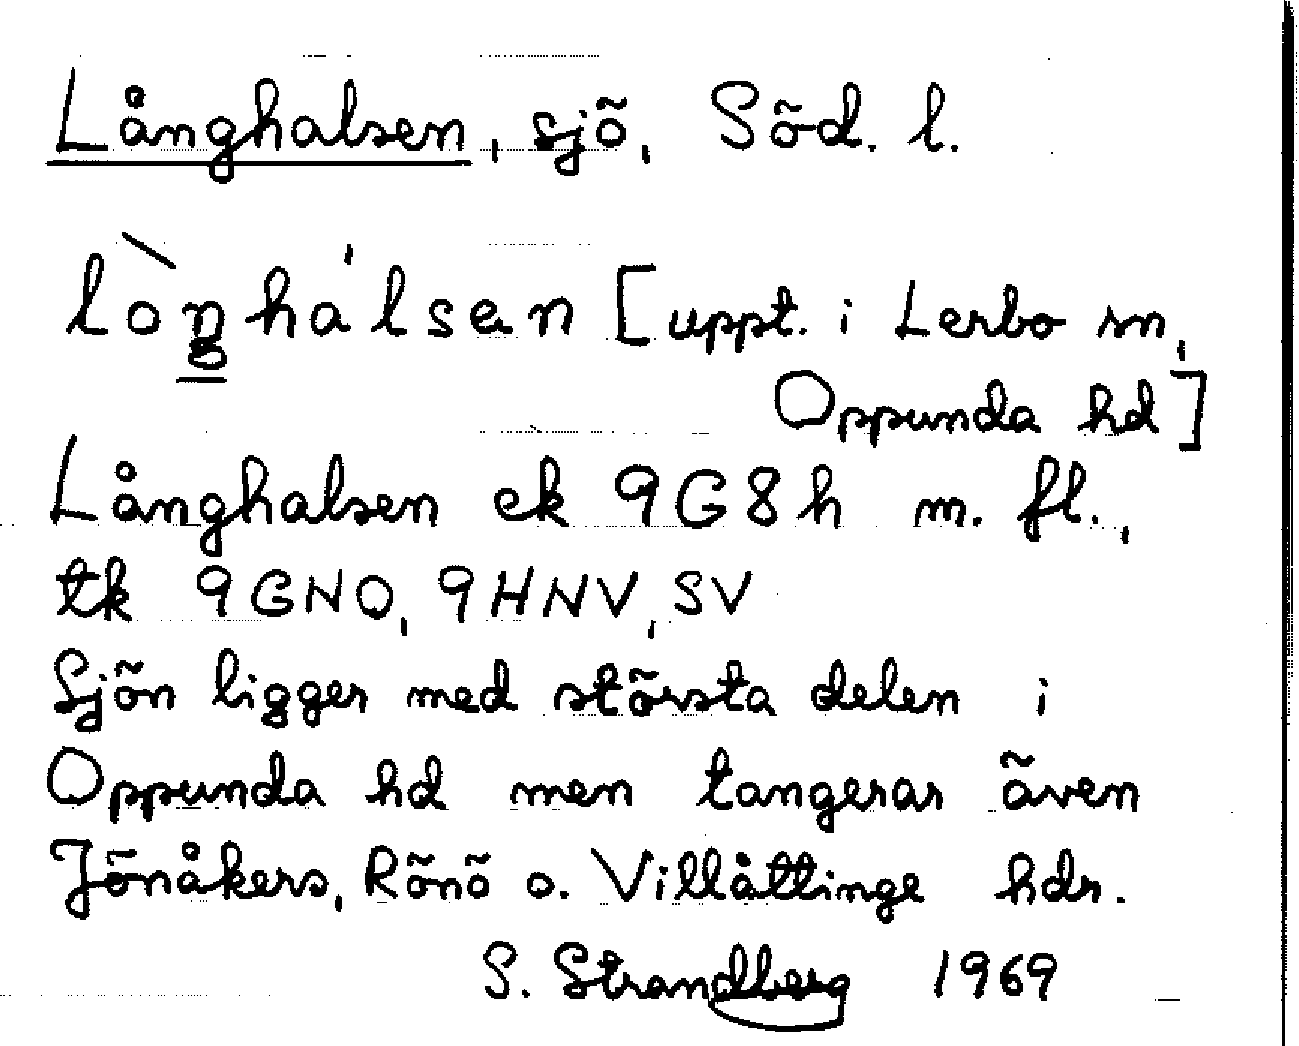 Långhalsen, sjö, Söd. l.
lòŋha'lsen [uppt. i Lerbo sn,
Oppunda hd]
Långhalsen ek 9G8h m. fl.,
tk 9GNO, 9HNV, SV
Sjön ligger med största delen i
Oppunda hd men tangerar även
Jönåkers, Rönö o. Villåttinge hdr.
S. Strandberg 1969